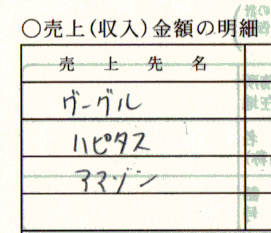 ○売上(収入)金額の明細
売上先名
グーグル
ハピタス
アマゾン